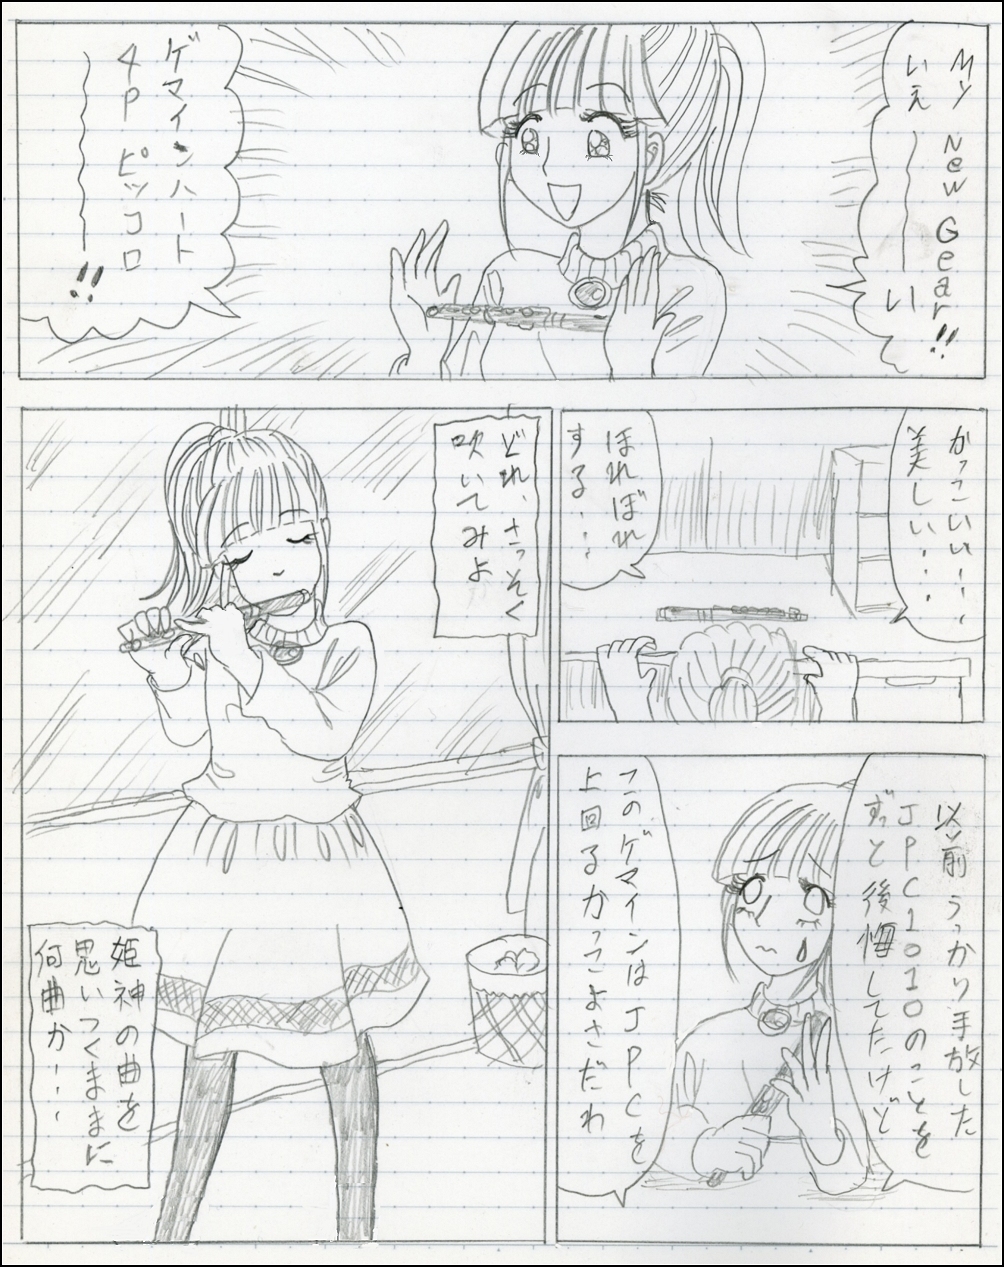 My New Gear!!
いえ――い
ゲマインハート
4P ピッコロ
――!!
かっこいい・・・
美しい・・・・
ほれぼれ
する・・・・
どれ、さっそく
吹いてみよ
以前うっかり手放した
JPC1010のことを
ずっと後悔してたけど
このゲマインはJPCを
上回るかっこよさだわ
姫神の曲を
思いつくままに
何曲か・・・・